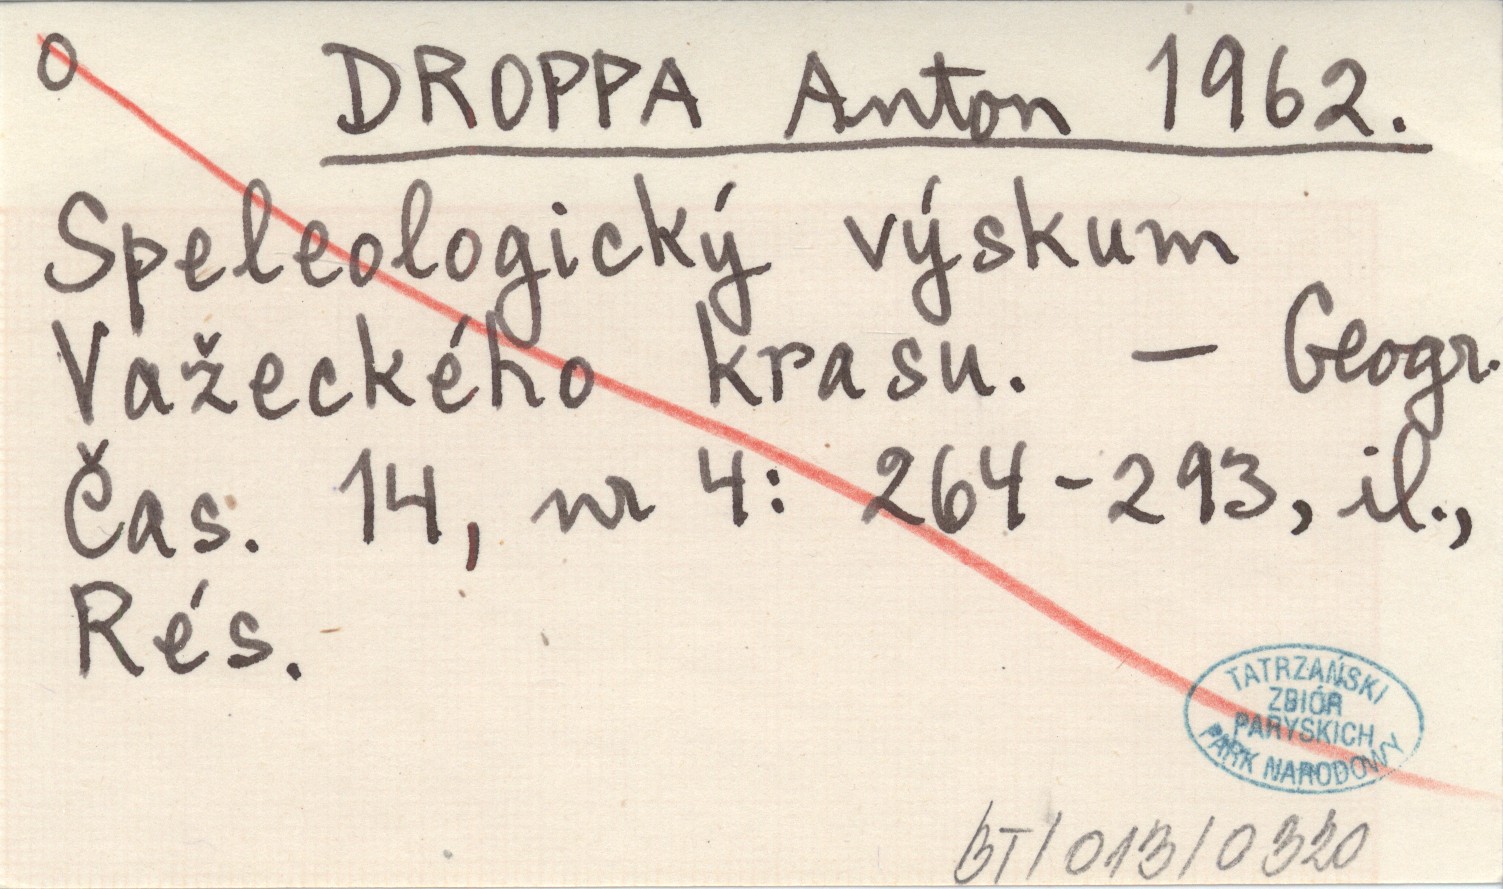 O DROPPA Anton 1962.
Speleologický výskum
Važeckého krasu. — Geogr.
Čas. 14, nr 4: 264-293, il.,
Rés.
TATRZAŃSKI
ZBIÓR
PARYSKICH
PARK NARODOWY
BT/013/0320